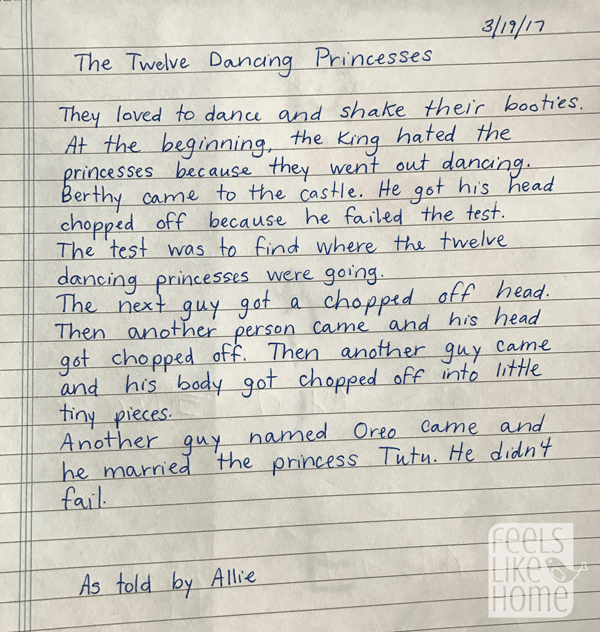 3/19/17
The Twelve Dancing Princesses
They loved to dance and shake their booties.
At the beginning, the King hated the
princesses because they went out dancing.
Berthy came to the castle. He got his head
chopped off because he failed the test.
The test was to find where the twelve
dancing princesses were going.
The next guy got a chopped off head.
Then another person came and his head
got chopped off. Then another guy came
and his body got chopped off into little
tiny pieces.
Another guy named Oreo came and
he married the princess Tutu. He didn't
fail.
As told by Allie
FEELS
LIKE
HOME